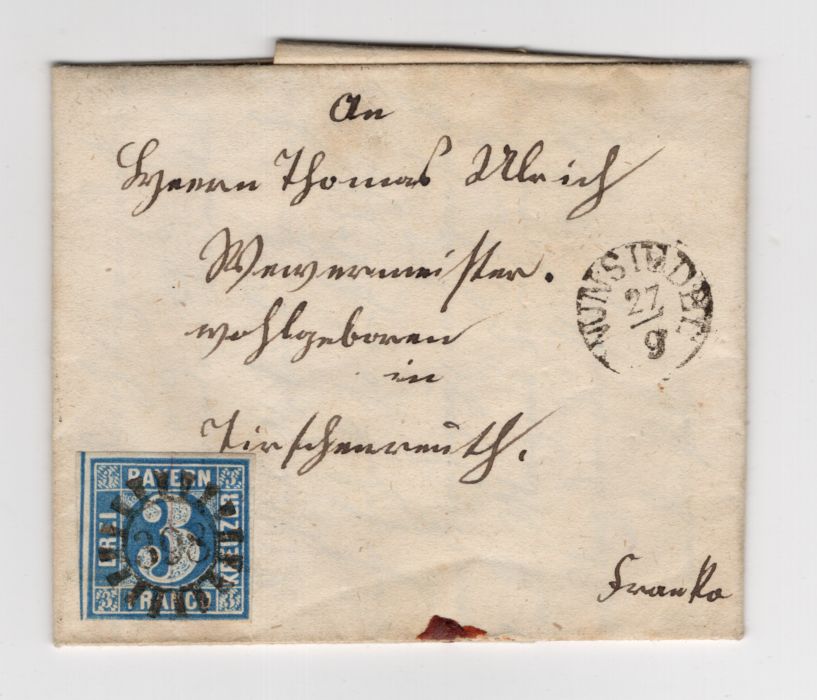 An
Herrn Thomas Ulrich
Webermeister.
wohlgeboren
in
Tirschenreuth.
Franko
WUNSIEDEL
27
9
BAYERN
DREI
3
KREUZER
FRANCO